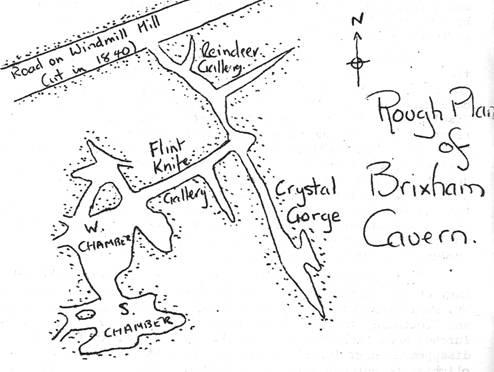 Road on Windmill Hill
(cut in 1840)
Reindeer
Gallery
N
Rough Plan
of
Brixham
Cavern.
Flint
Knife
Gallery
Crystal
Gorge
W.
CHAMBER
S
CHAMBER